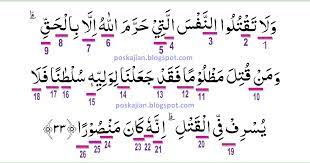 وَلَا تَقْتُلُوا النَّفْسَ الَّتِيْ حَرَّمَ اللّٰهُ اِلَّا بِالْحَقِّ ۗ
1 2 3 4 5 6 7 8 9
poskajian.blogspot.com
وَمَنْ قُتِلَ مَظْلُوْمًا فَقَدْ جَعَلْنَا لِوَلِيِّهٖ سُلْطٰنًا فَلَا
10 11 12 13 14 15 16 17 18
poskajian.blogspot.com
يُسْرِفْ فِّى الْقَتْلِ ۗ اِنَّهٗ كَانَ مَنْصُوْرًا ﴿٣٣﴾
19 20 21 22 23 24 25 26